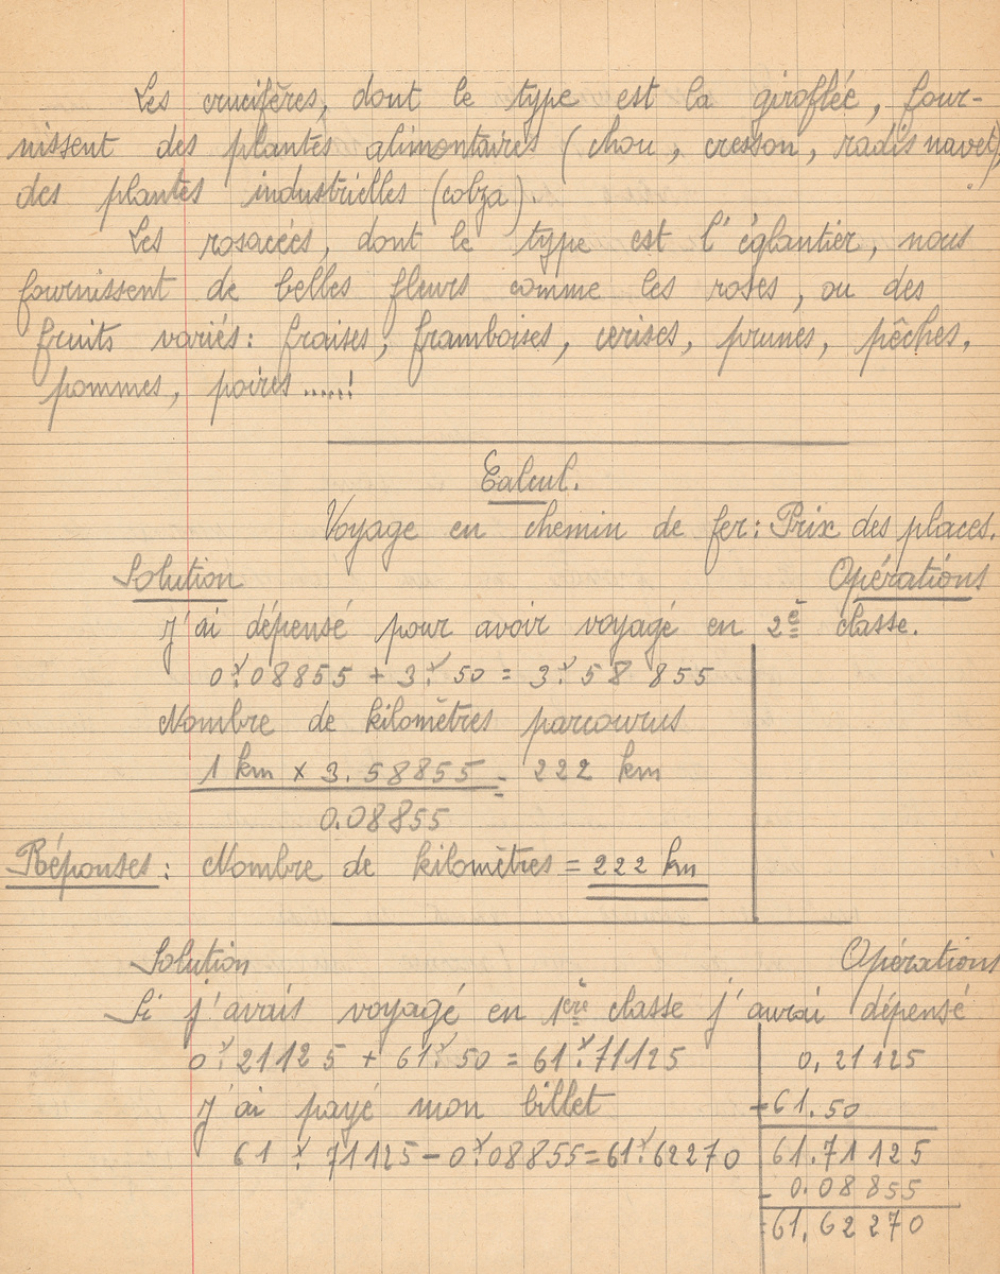 Les crucifères, dont le type est la giroflée, four-
nissent des plantes alimentaires (chou, cresson, radis navet),
des plantes industrielles (colza)
Les rosacées, dont le type est l'églantier, nous
fournissent de belles fleurs comme les roses, ou des
fruits variés: fraises, framboises, cerises, prunes, pêches,
pommes, poires.....!
Calcul.
Voyage en chemin de fer: Prix des places.
Solution Opérations
J'ai dépensé pour avoir voyagé en 2e classe.
0F.08855 + 3F.50 = 3F.58 855
Nombre de kilomètres parcourus
1 km x 3.58855 = 222 km
0.08855
Réponses: Nombre de kilomètres = 222 km
Solution Opérations
Si j'avais voyagé en 1ère classe j'aurai dépensé
0F.21125 + 61F.50 = 61F.71125 0,21125
+61.50
J'ai payé mon billet
61F.71125 - 0F.08855 = 61F.62270 61.71125
- 0.08855
=61,62270